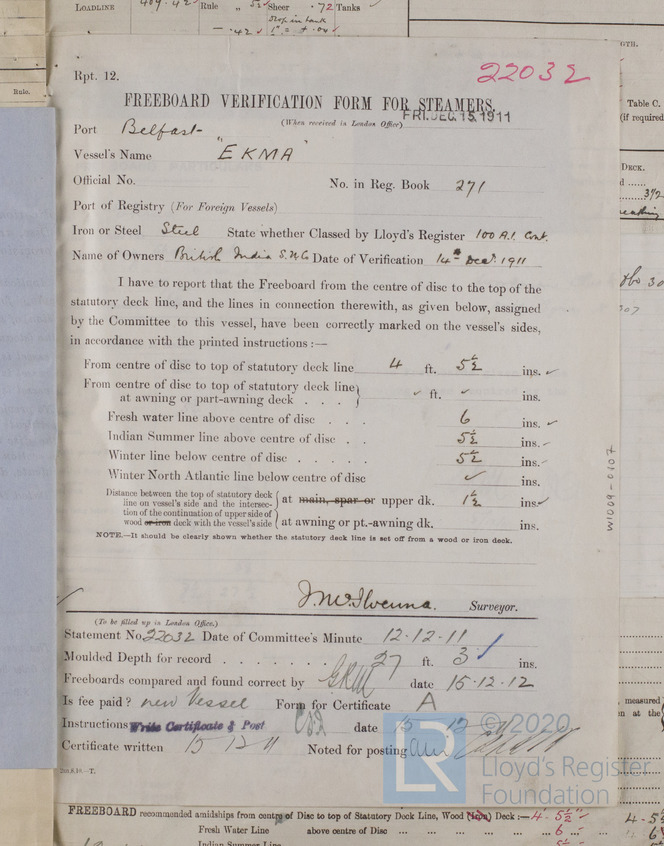 LOADLINE
Rule " 5½ Sheer .72 Tanks
Rule.
Rpt. 12.
22032
FREEBOARD VERIFICATION FORM FOR STEAMERS.
(When received in London Office) FRI. DEC. 15. 1911
Port Belfast
Vessel's Name "EKMA"
Official No. No. in Reg. Book 271
Port of Registry (For Foreign Vessels)
Iron or Steel Steel State whether Classed by Lloyd's Register 100 A.1. Cont.
Name of Owners British India S.N.Co Date of Verification 14th Decr. 1911
I have to report that the Freeboard from the centre of disc to the top of the
statutory deck line, and the lines in connection therewith, as given below, assigned
by the Committee to this vessel, have been correctly marked on the vessel's sides,
in accordance with the printed instructions :—
From centre of disc to top of statutory deck line 4 ft. 5½ ins. ✓
From centre of disc to top of statutory deck line
at awning or part-awning deck . . . ✓ ft. ✓ ins.
Fresh water line above centre of disc . . . 6 ins. ✓
Indian Summer line above centre of disc . . 5½ ins. ✓
Winter line below centre of disc . . . . . 5½ ins. ✓
Winter North Atlantic line below centre of disc ✓ ins.
Distance between the top of statutory deck
line on vessel's side and the intersec-
tion of the continuation of upper side of
wood or iron deck with the vessel's side
at main, spar or upper dk. 1½ ins. ✓
at awning or pt.-awning dk. ins.
NOTE.—It should be clearly shown whether the statutory deck line is set off from a wood or iron deck.
W1009-0107
Surveyor.
(To be filled up in London Office.)
Statement No. 22032 Date of Committee's Minute 12-12-11
Moulded Depth for record . . . . . . . 27 ft. 3 ins.
Freeboards compared and found correct by GRM date 15.12.12
Is fee paid? new Vessel Form for Certificate A
Instructions Write Certificate & Post date 15 12
Certificate written 15 12 11 Noted for posting
© 2020
LR
Lloyd's Register
Foundation
Table C.
(if required
DECK.
measured
n at the
FREEBOARD recommended amidships from centre of Disc to top of Statutory Deck Line, Wood (Iron) Deck :— 4. 5½
Fresh Water Line above centre of Disc ... ... ... ... 6
Indian Summer Line